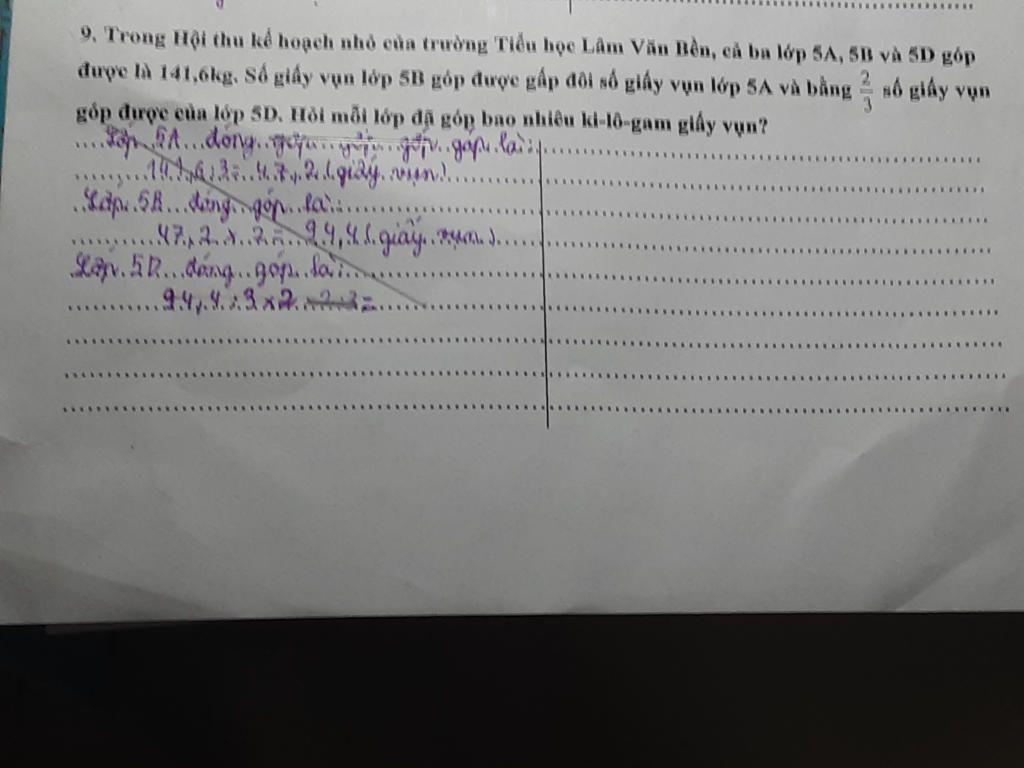 9. Trong Hội thu kế hoạch nhỏ của trường Tiểu học Lâm Văn Bền, cả ba lớp 5A, 5B và 5D góp
được là 141,6kg. Số giấy vụn lớp 5B góp được gấp đôi số giấy vụn lớp 5A và bằng 2/3 số giấy vụn
góp được của lớp 5D. Hỏi mỗi lớp đã góp bao nhiêu ki-lô-gam giấy vụn?
Lớp 5A đóng góp là:
141,6 : 3 = 47,2 (giấy vụn)
Lớp 5B đóng góp là:
47,2 x 2 = 94,4 (giấy vụn)
Lớp 5D đóng góp là:
94,4 : 3 x 2 =